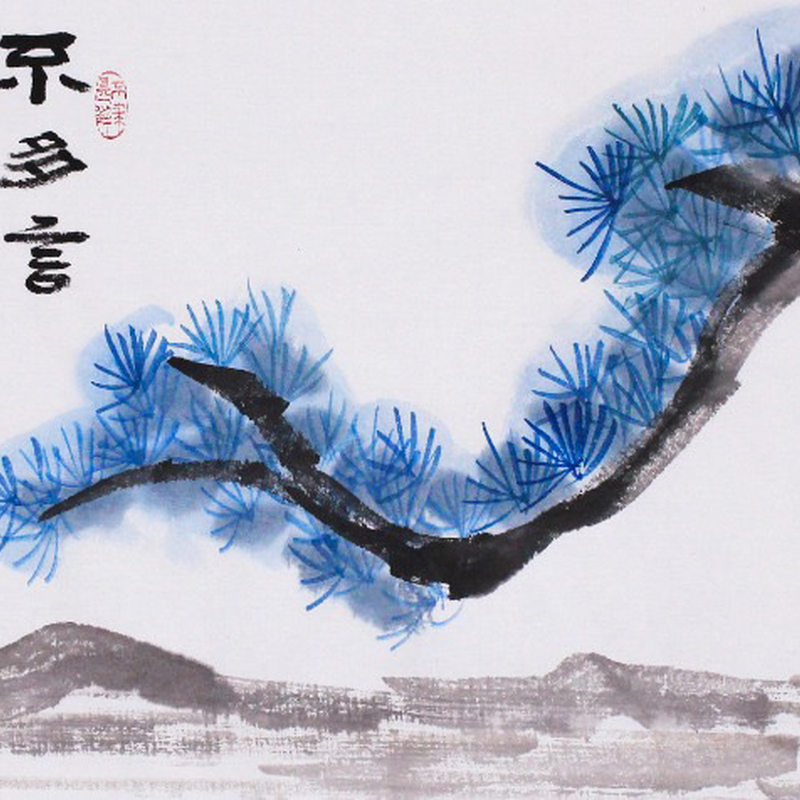 不多言